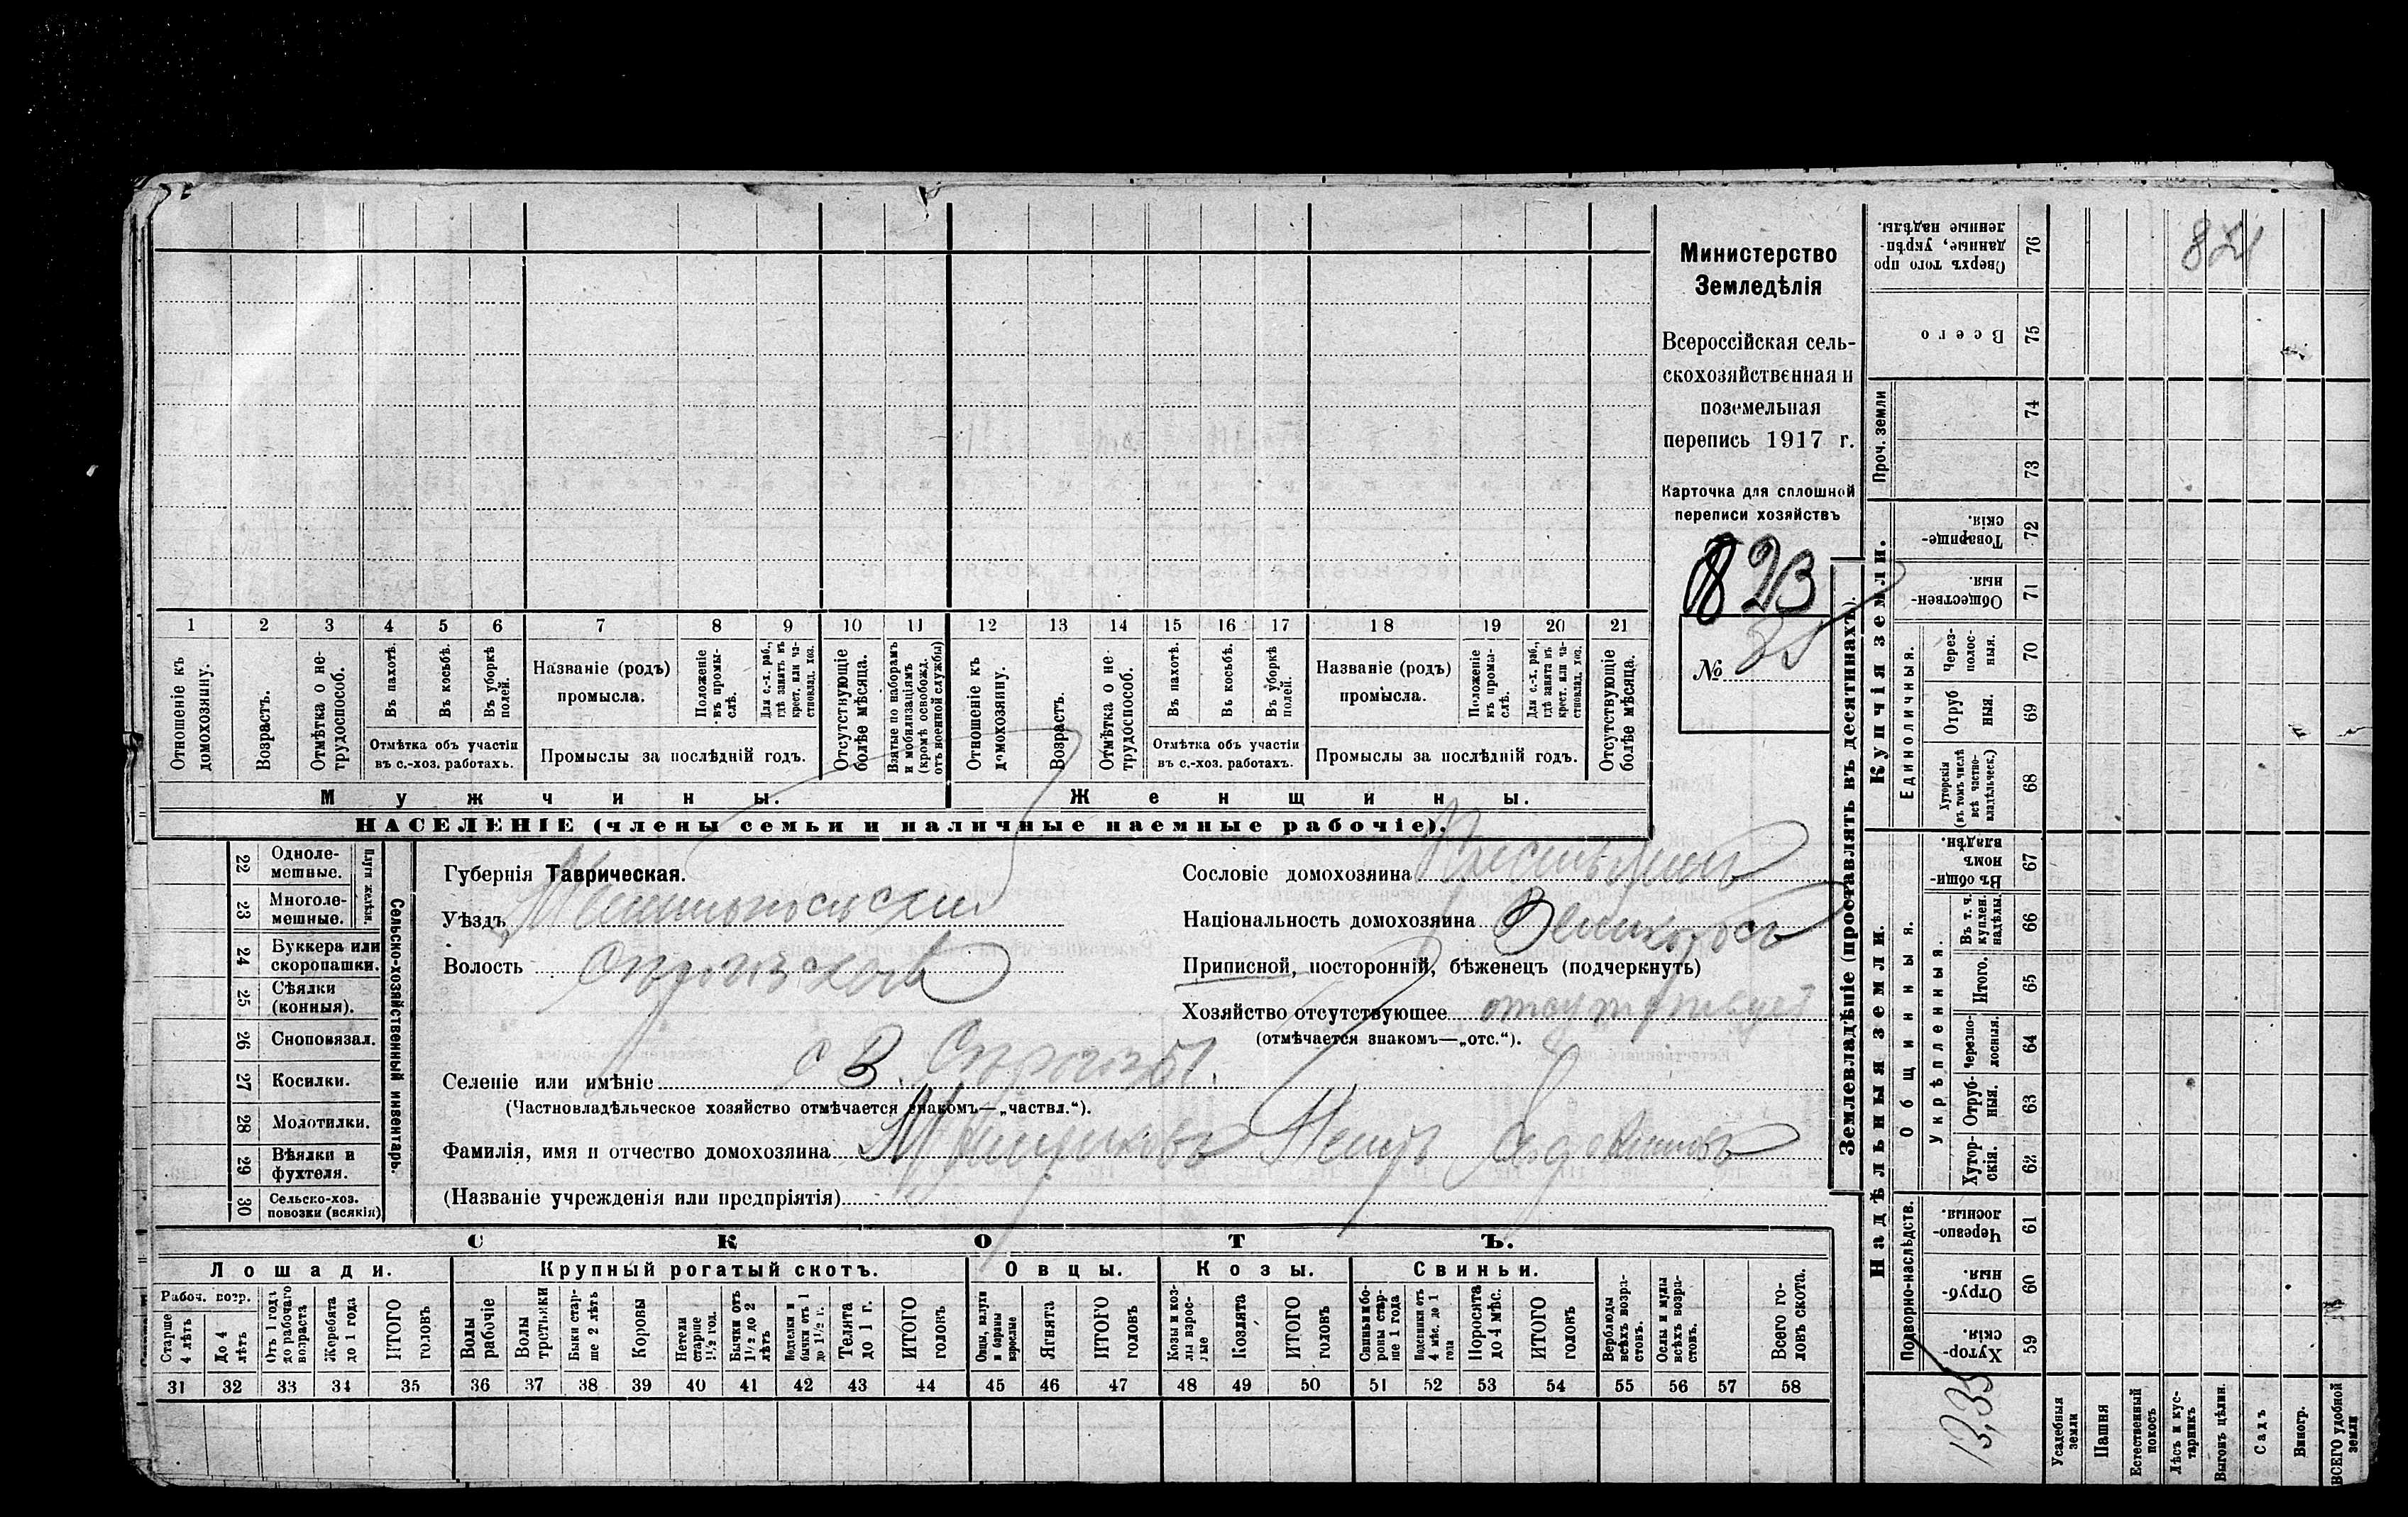 821
Министерство
Земледѣлія
Всероссійская сель-
скохозяйственная и
поземельная
перепись 1917 г.
Карточка для сплошной
переписи хозяйствъ
№ 35
1 2 3 4 5 6 7 8 9 10 11 12 13 14 15 16 17 18 19 20 21
Отношеніе къ домохозяину.
Возрастъ.
Отмѣтка о не-трудоспособ.
Въ пахотѣ.
Въ косьбѣ.
Въ уборкѣ полей.
Отмѣтка объ участіи въ с.-хоз. работахъ.
Названіе (родъ) промысла.
Положеніе въ промы-слѣ.
Для с.-х. раб., гдѣ занятъ въ крест. или ча-стновлад. хоз.
Промыслы за послѣдній годъ.
Отсутствующіе болѣе мѣсяца.
Взятые по наборамъ и мобилизаціямъ (кромѣ освобожд. отъ военной службы)
Отношеніе къ домохозяину.
Возрастъ.
Отмѣтка о не трудоспособ.
Въ пахотѣ.
Въ косьбѣ.
Въ уборкѣ полей.
Отмѣтка объ участіи въ с.-хоз. работахъ.
Названіе (родъ) промысла.
Положеніе въ промы-слѣ.
Для с.-х. раб., гдѣ занятъ въ крест. или ча-стновлад. хоз.
Промыслы за послѣдній годъ.
Отсутствующіе болѣе мѣсяца.
Мужчины.
Женщины.
НАСЕЛЕНІЕ (члены семьи и наличные наемные рабочіе).
22 Одноле-мешные.
23 Многоле-мешные.
Плуги желѣзн.
24 Буккера или скоропашки.
25 Сѣялки (конныя).
26 Сноповязал.
27 Косилки.
28 Молотилки.
29 Вѣялки и фухтеля.
30 Сельско-хоз. повозки (всякія)
Сельско-хозяйственный инвентарь.
Губернія Таврическая.
Уѣздъ Мелитопольскій
Волость
Селеніе или имѣніе с В. Сѣрогозы.
(Частновладѣльческое хозяйство отмѣчается знакомъ—„частвл.“).
Фамилія, имя и отчество домохозяина
(Названіе учрежденія или предпріятія)
Сословіе домохозяина Крестьянинъ
Національность домохозяина Великоросъ
Приписной, посторонній, бѣженецъ (подчеркнуть)
Хозяйство отсутствующее отсутствуетъ
(отмѣчается знакомъ—„отс.“).
СКОТЪ.
Лошади.
Крупный рогатый скотъ.
Овцы.
Козы.
Свиньи.
Рабоч. возр.
Старше 4 лѣтъ
До 4 лѣтъ
Отъ 1 года до рабочаго возраста
Жеребята до 1 года
ИТОГО головъ
Волы рабочіе
Волы третьяки
Быки стар-ше 2 лѣтъ
Коровы
Нетели старше 1½ год.
Бычки отъ 1½ до 2 лѣтъ
Подтелки и бычки отъ 1 до 1½ г.
Телята до 1 г.
ИТОГО головъ
Овцы, валухи и бараны взрослые
Ягнята
ИТОГО головъ
Козы и коз-лы взрос-лые
Козлята
ИТОГО головъ
Свиньи и бо-ровы стар-ше 1 года
Подсвинки отъ 4 мѣс. до 1 года
Поросята до 4 мѣс.
ИТОГО головъ
Верблюды всѣхъ возра-стовъ.
Ослы и мулы всѣхъ возра-стовъ.
Всего го-ловъ скота.
31 32 33 34 35 36 37 38 39 40 41 42 43 44 45 46 47 48 49 50 51 52 53 54 55 56 57 58
Землевладѣніе (проставлять въ десятинахъ).
Надѣльныя земли.
Купчія земли.
Проч. земли
Сверхъ того про данные, укрѣп-ленные надѣлы. 76
Всего 75
74
73
Товарище-скія. 72
Обществен-ныя. 71
Единоличныя.
Через-полос-ныя. 70
Отруб ныя. 69
Хуторскія (въ томъ числѣ всѣ частно-владѣльческ.) 68
Общинныя.
Въ общин-номъ владѣн. 67
Въ т. ч. куплен. надѣлы. 66
Укрѣпленныя.
Итого. 65
Черезпо-лосныя. 64
Отруб-ныя. 63
Хутор-скія. 62
Подворно-наслѣдств.
Черезпо-лосныя. 61
Отруб-ныя. 60
Хутор-скія. 59
Усадебныя земли
Пашня
Естественный покосъ
Лѣсъ и кус-тарникъ
Выгонъ цѣлин.
Садъ
Виногр.
ВСЕГО удобной земли